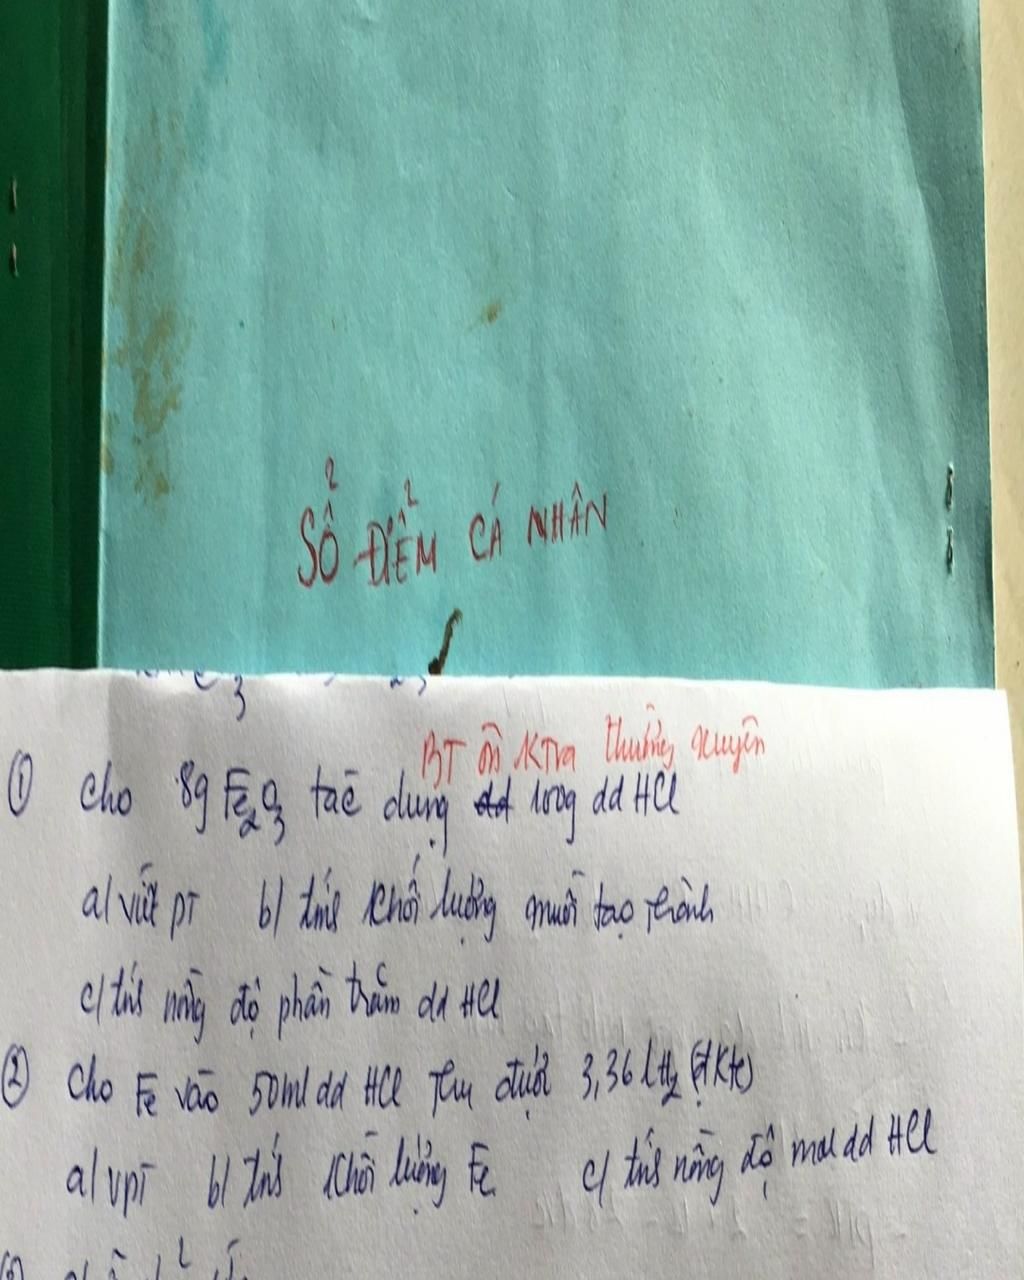 SỔ ĐIỂM CÁ NHÂN
BT ôn KTra thường xuyên
① Cho 8g Fe2O3 tác dụng 100g dd HCl
a/ viết PT b/ tính khối lượng muối tạo thành
c/ tính nồng độ phần trăm dd HCl
② Cho Fe vào 50ml dd HCl thu được 3,36 l H2 (đktc)
a/ VPT b/ tính khối lượng Fe c/ tính nồng độ mol dd HCl